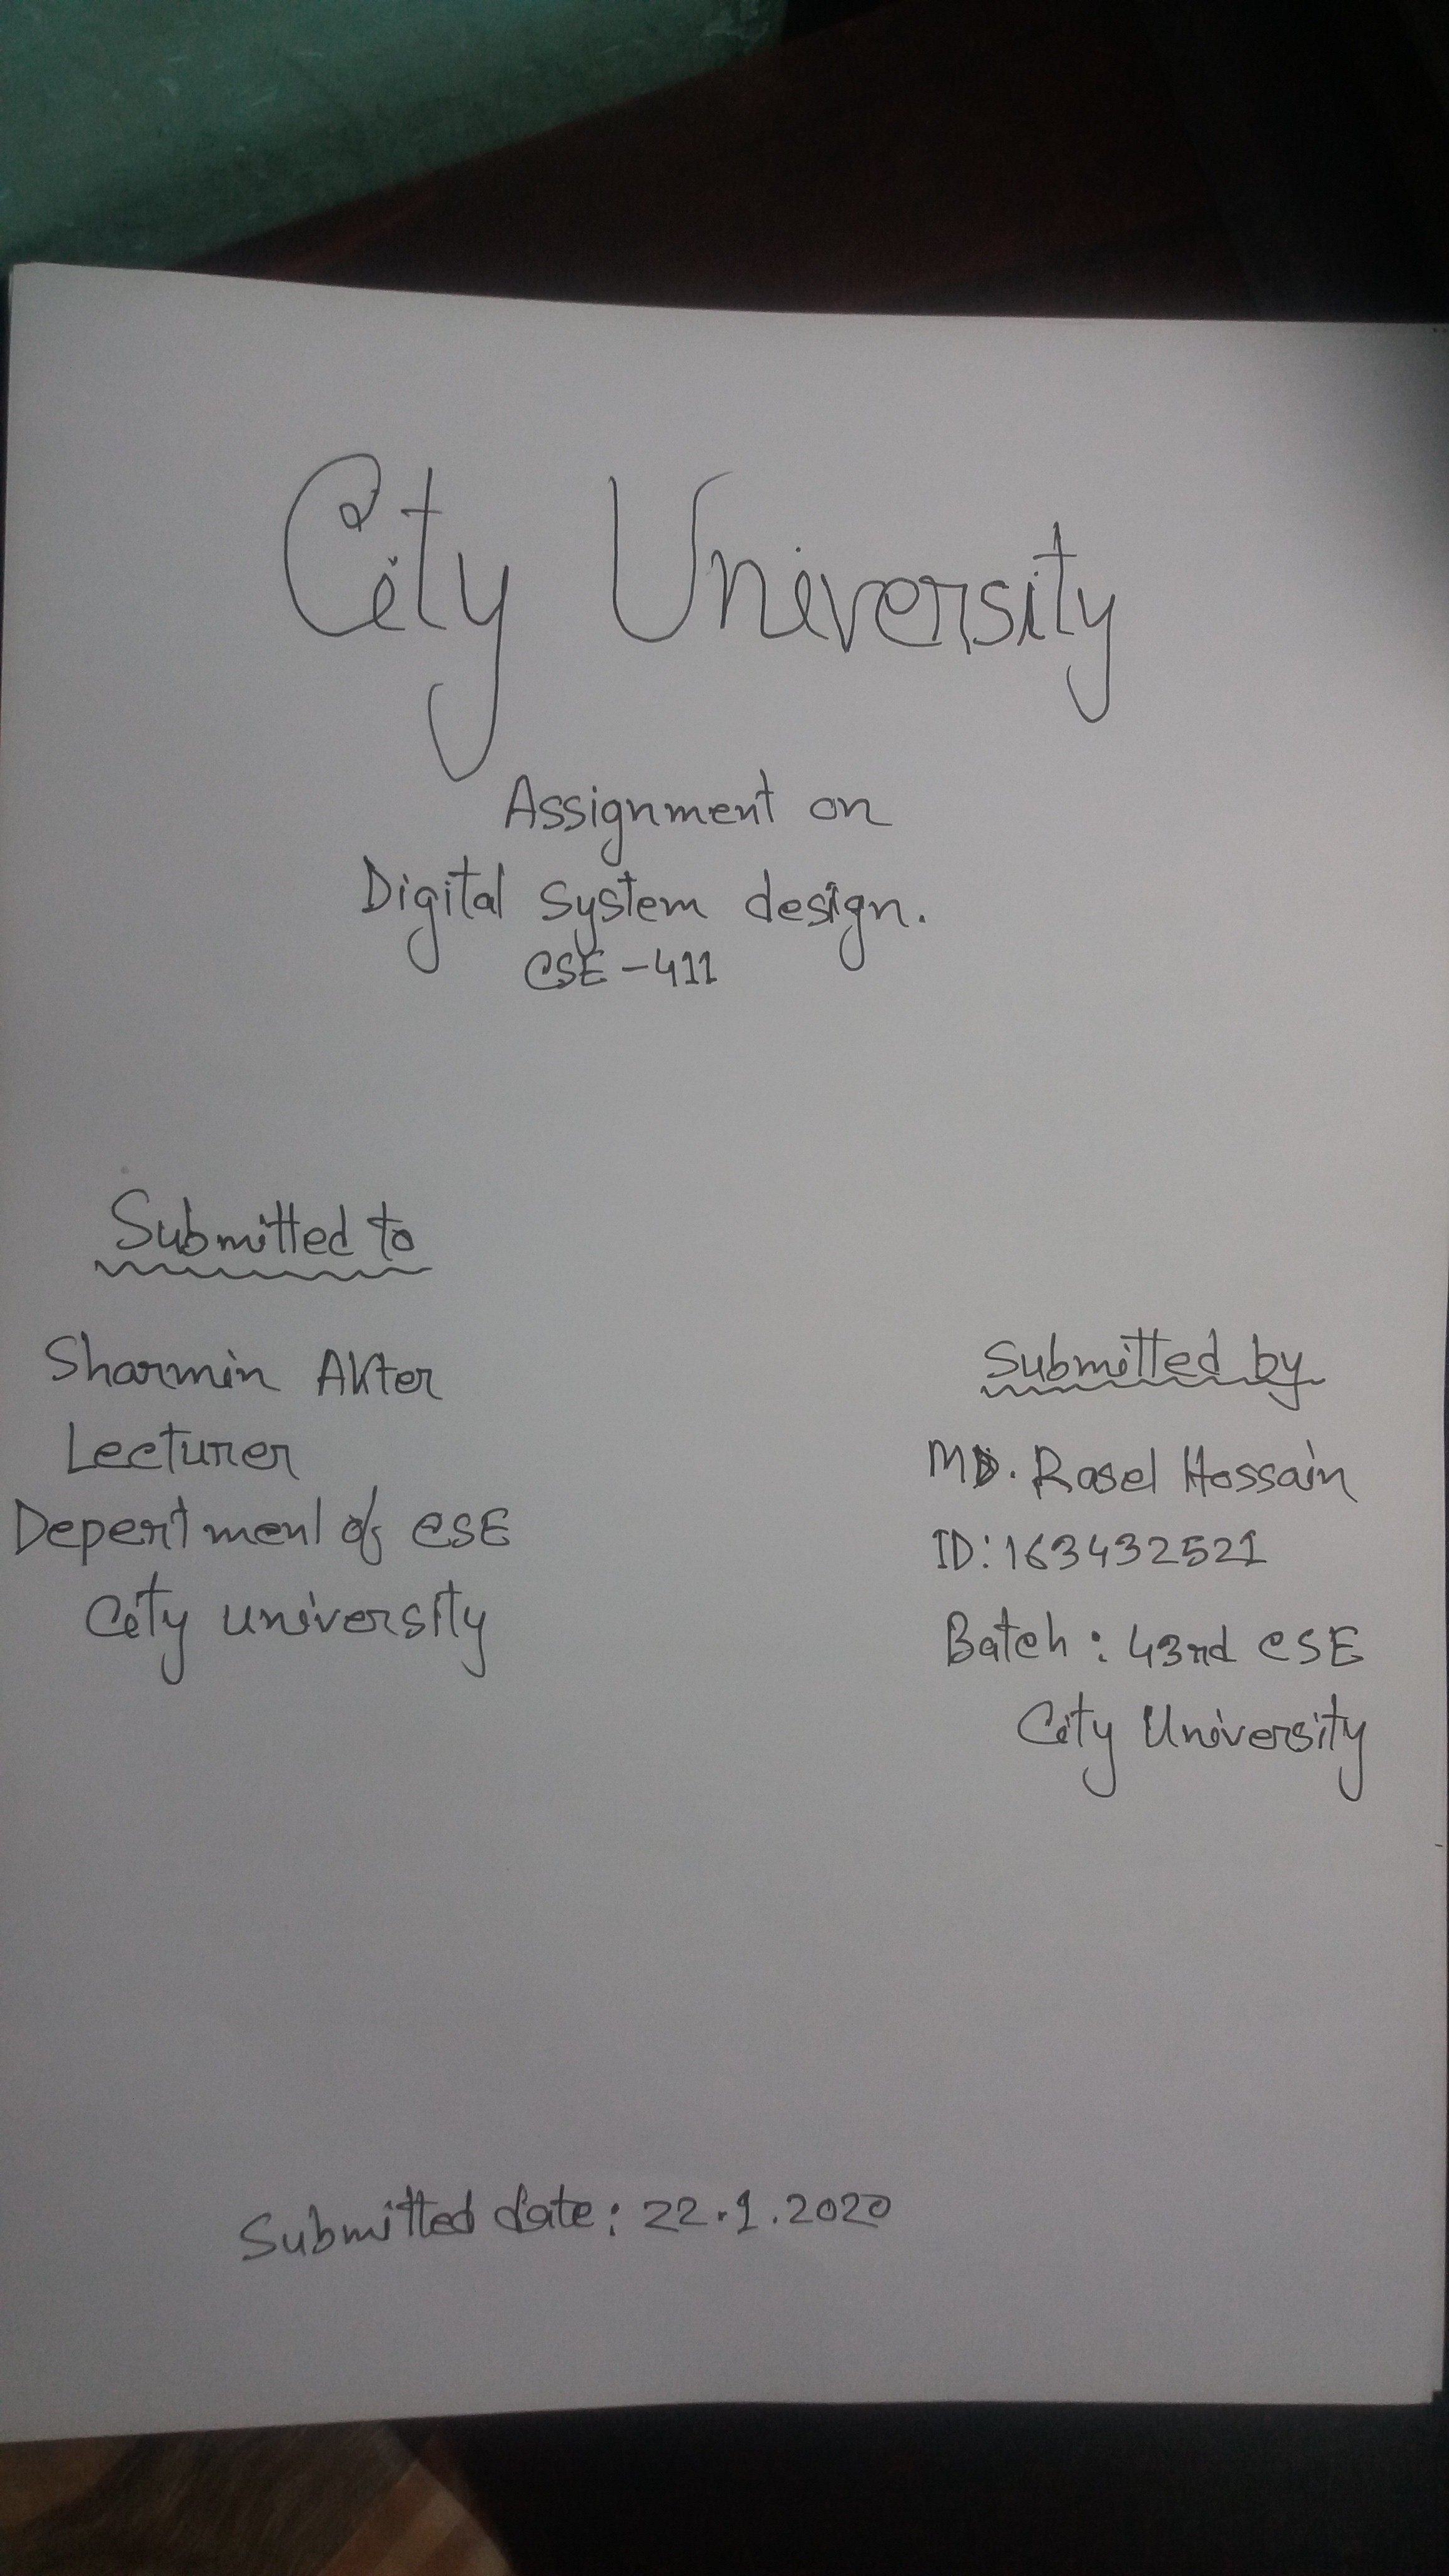 City University
Assignment on
Digital System design.
CSE-411
Submitted to
Sharmin Akter
Lecturer
Depertment of CSE
City university
Submitted by
MD. Rasel Hossain
ID: 163432521
Batch: 43rd CSE
City University
Submitted date: 22.1.2020